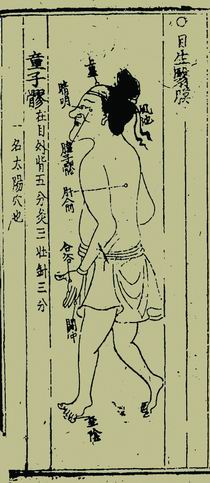 ○目生翳膜
風池
睛明
瞳子髎
肝俞
合谷
關冲
至陰
童子髎在目外眥五分灸三壯針三分
一名太陽穴也